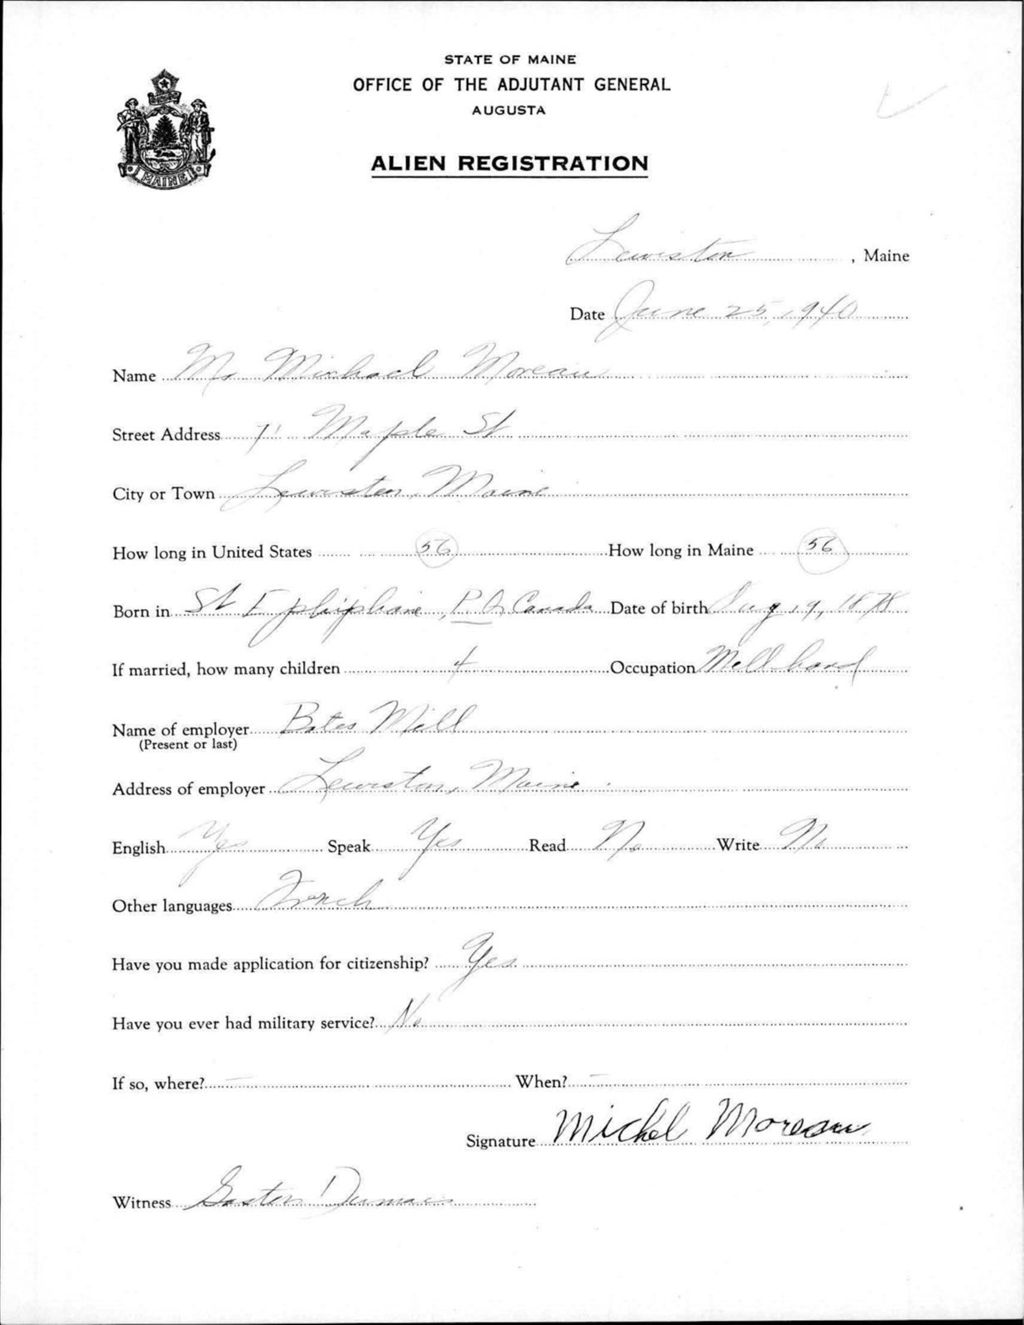 STATE OF MAINE
OFFICE OF THE ADJUTANT GENERAL
AUGUSTA
MAINE
ALIEN REGISTRATION
Lewiston, Maine
Date June 25, 1940
Name Mr Michael Moreau
Street Address 71 Maple St
City or Town Lewiston, Maine
How long in United States 56 How long in Maine 56
Born in St Ephiphane, P.Q. Canada Date of birth Aug 19, 1878
If married, how many children 4 Occupation Mill hand
Name of employer Bates Mill
(Present or last)
Address of employer Lewiston, Maine
English Yes Speak Yes Read No Write No
Other languages French
Have you made application for citizenship? Yes
Have you ever had military service? No
If so, where? — When? —
Signature Michel Moreau
Witness Gaston Dumais